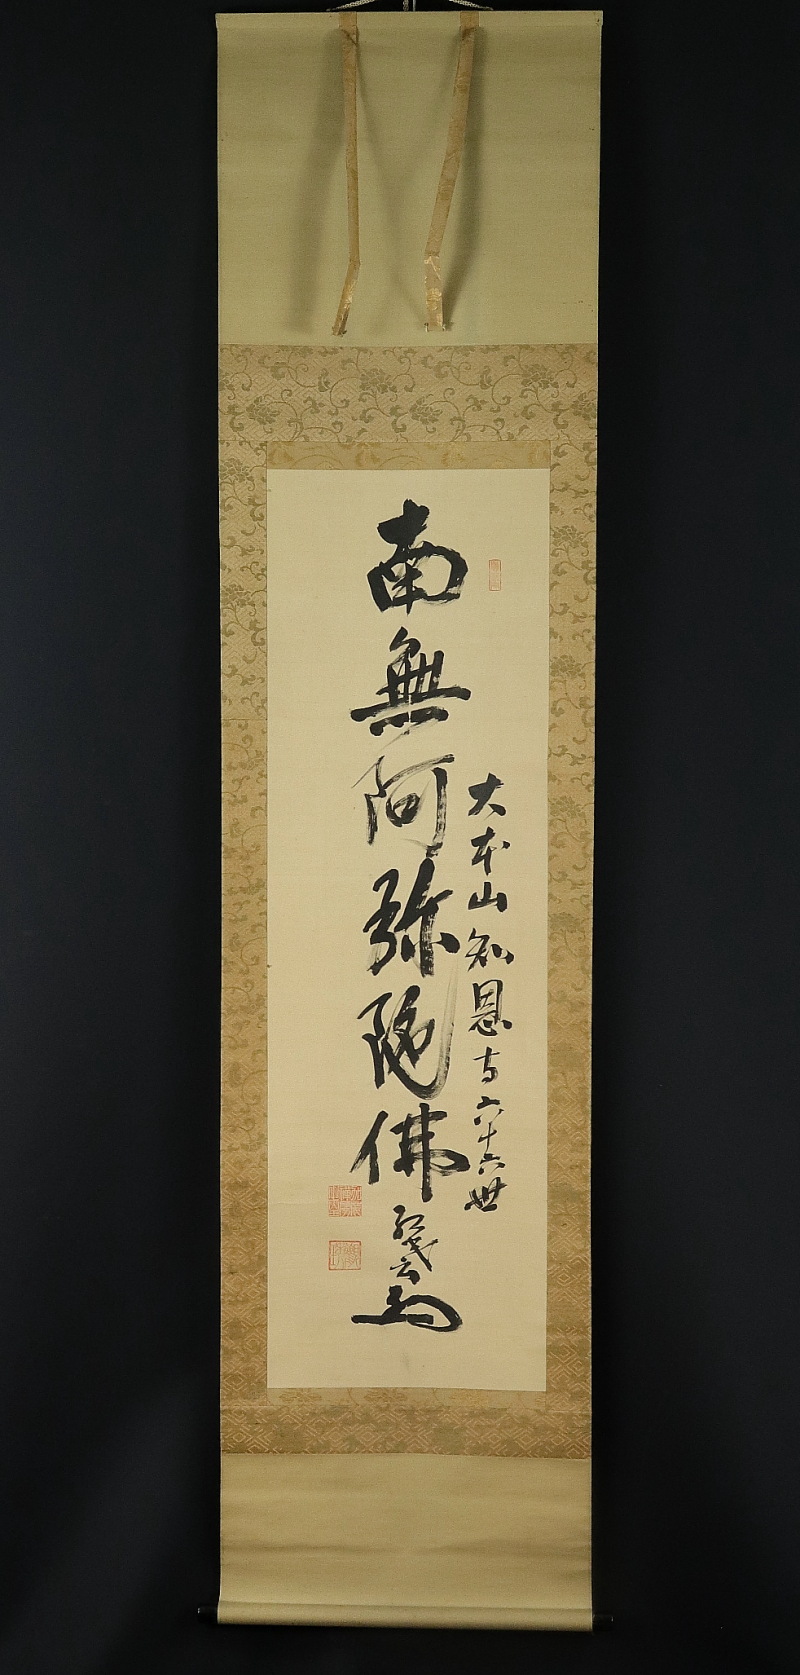 大本山知恩寺六十六世
南無阿弥陀佛